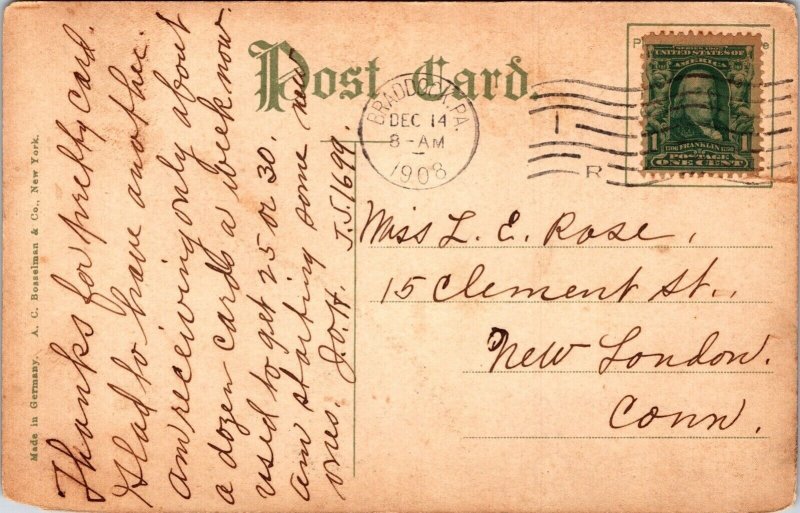 Post Card.
BRADDOCK, PA.
DEC 14
8-AM
1908
I
R
SERIES 1902
UNITED STATES OF
AMERICA
1 FRANKLIN 1
POSTAGE
ONE CENT
Miss L. E. Rose,
15 Clement St.,
New London.
Conn.
Thanks for pretty card.
Glad to have another.
Am receiving only about
a dozen cards a week now.
used to get 25 or 30.
am starting some new
ones. J.O.H. J.S. 1699.
Made in Germany. A. C. Bosselman & Co., New York.